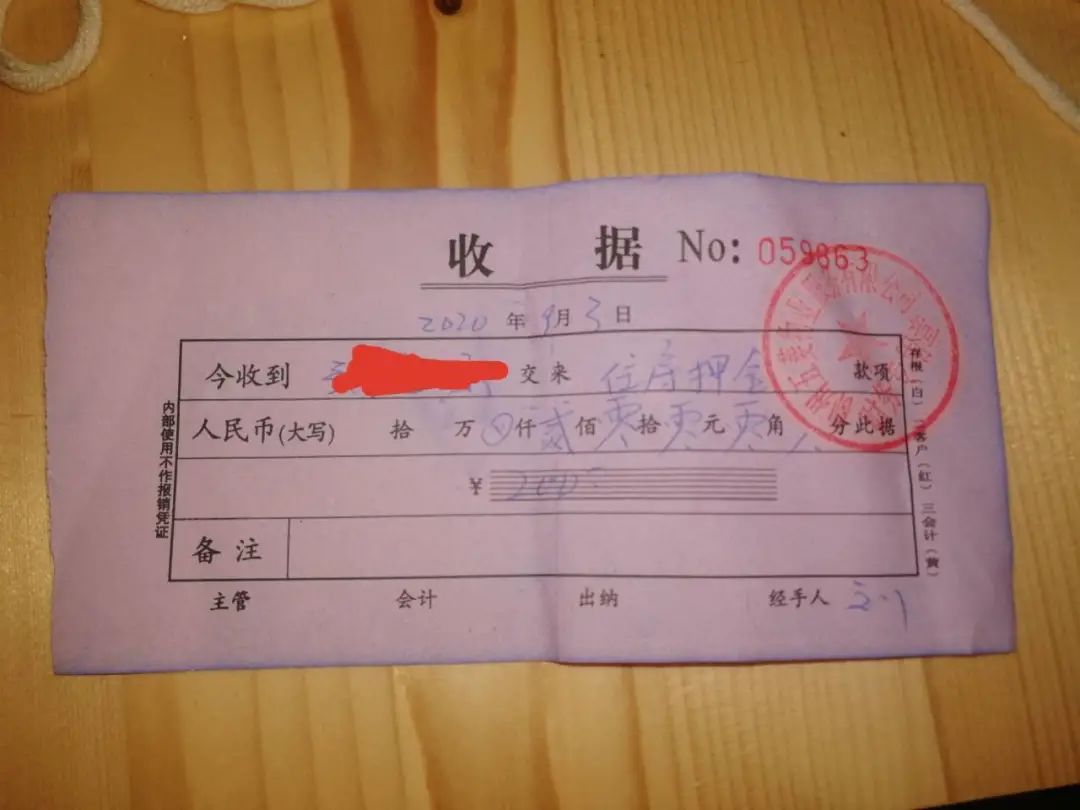 收据 No: 059863
2020年9月3日
今收到 交来 住房押金 款项
人民币(大写) 拾 万 仟 贰 佰 零 拾 零 元 零 角 分此据
¥ 200
备注
主管 会计 出纳 经手人
内部使用不作报销凭证
存根(白) 二客户(红) 三会计(黄)